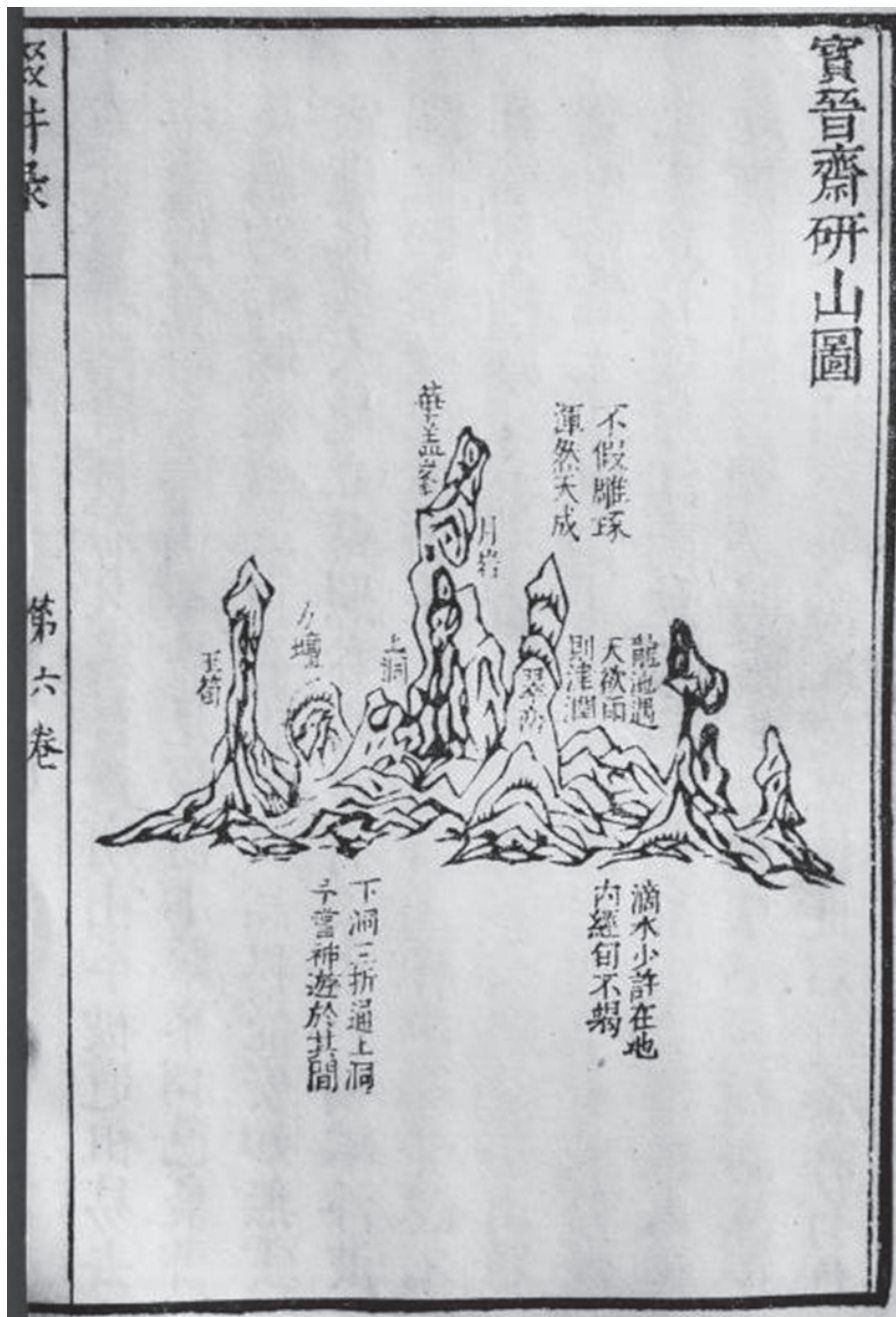 寶晉齋研山圖
不假雕琢
渾然天成
華盖峯
月岩
龍池遇
天欲雨
則津潤
翠巒
上洞
方壇
玉筍
滴水少許在地
內經旬不竭
下洞三折通上洞
予嘗神遊於其間
第六卷